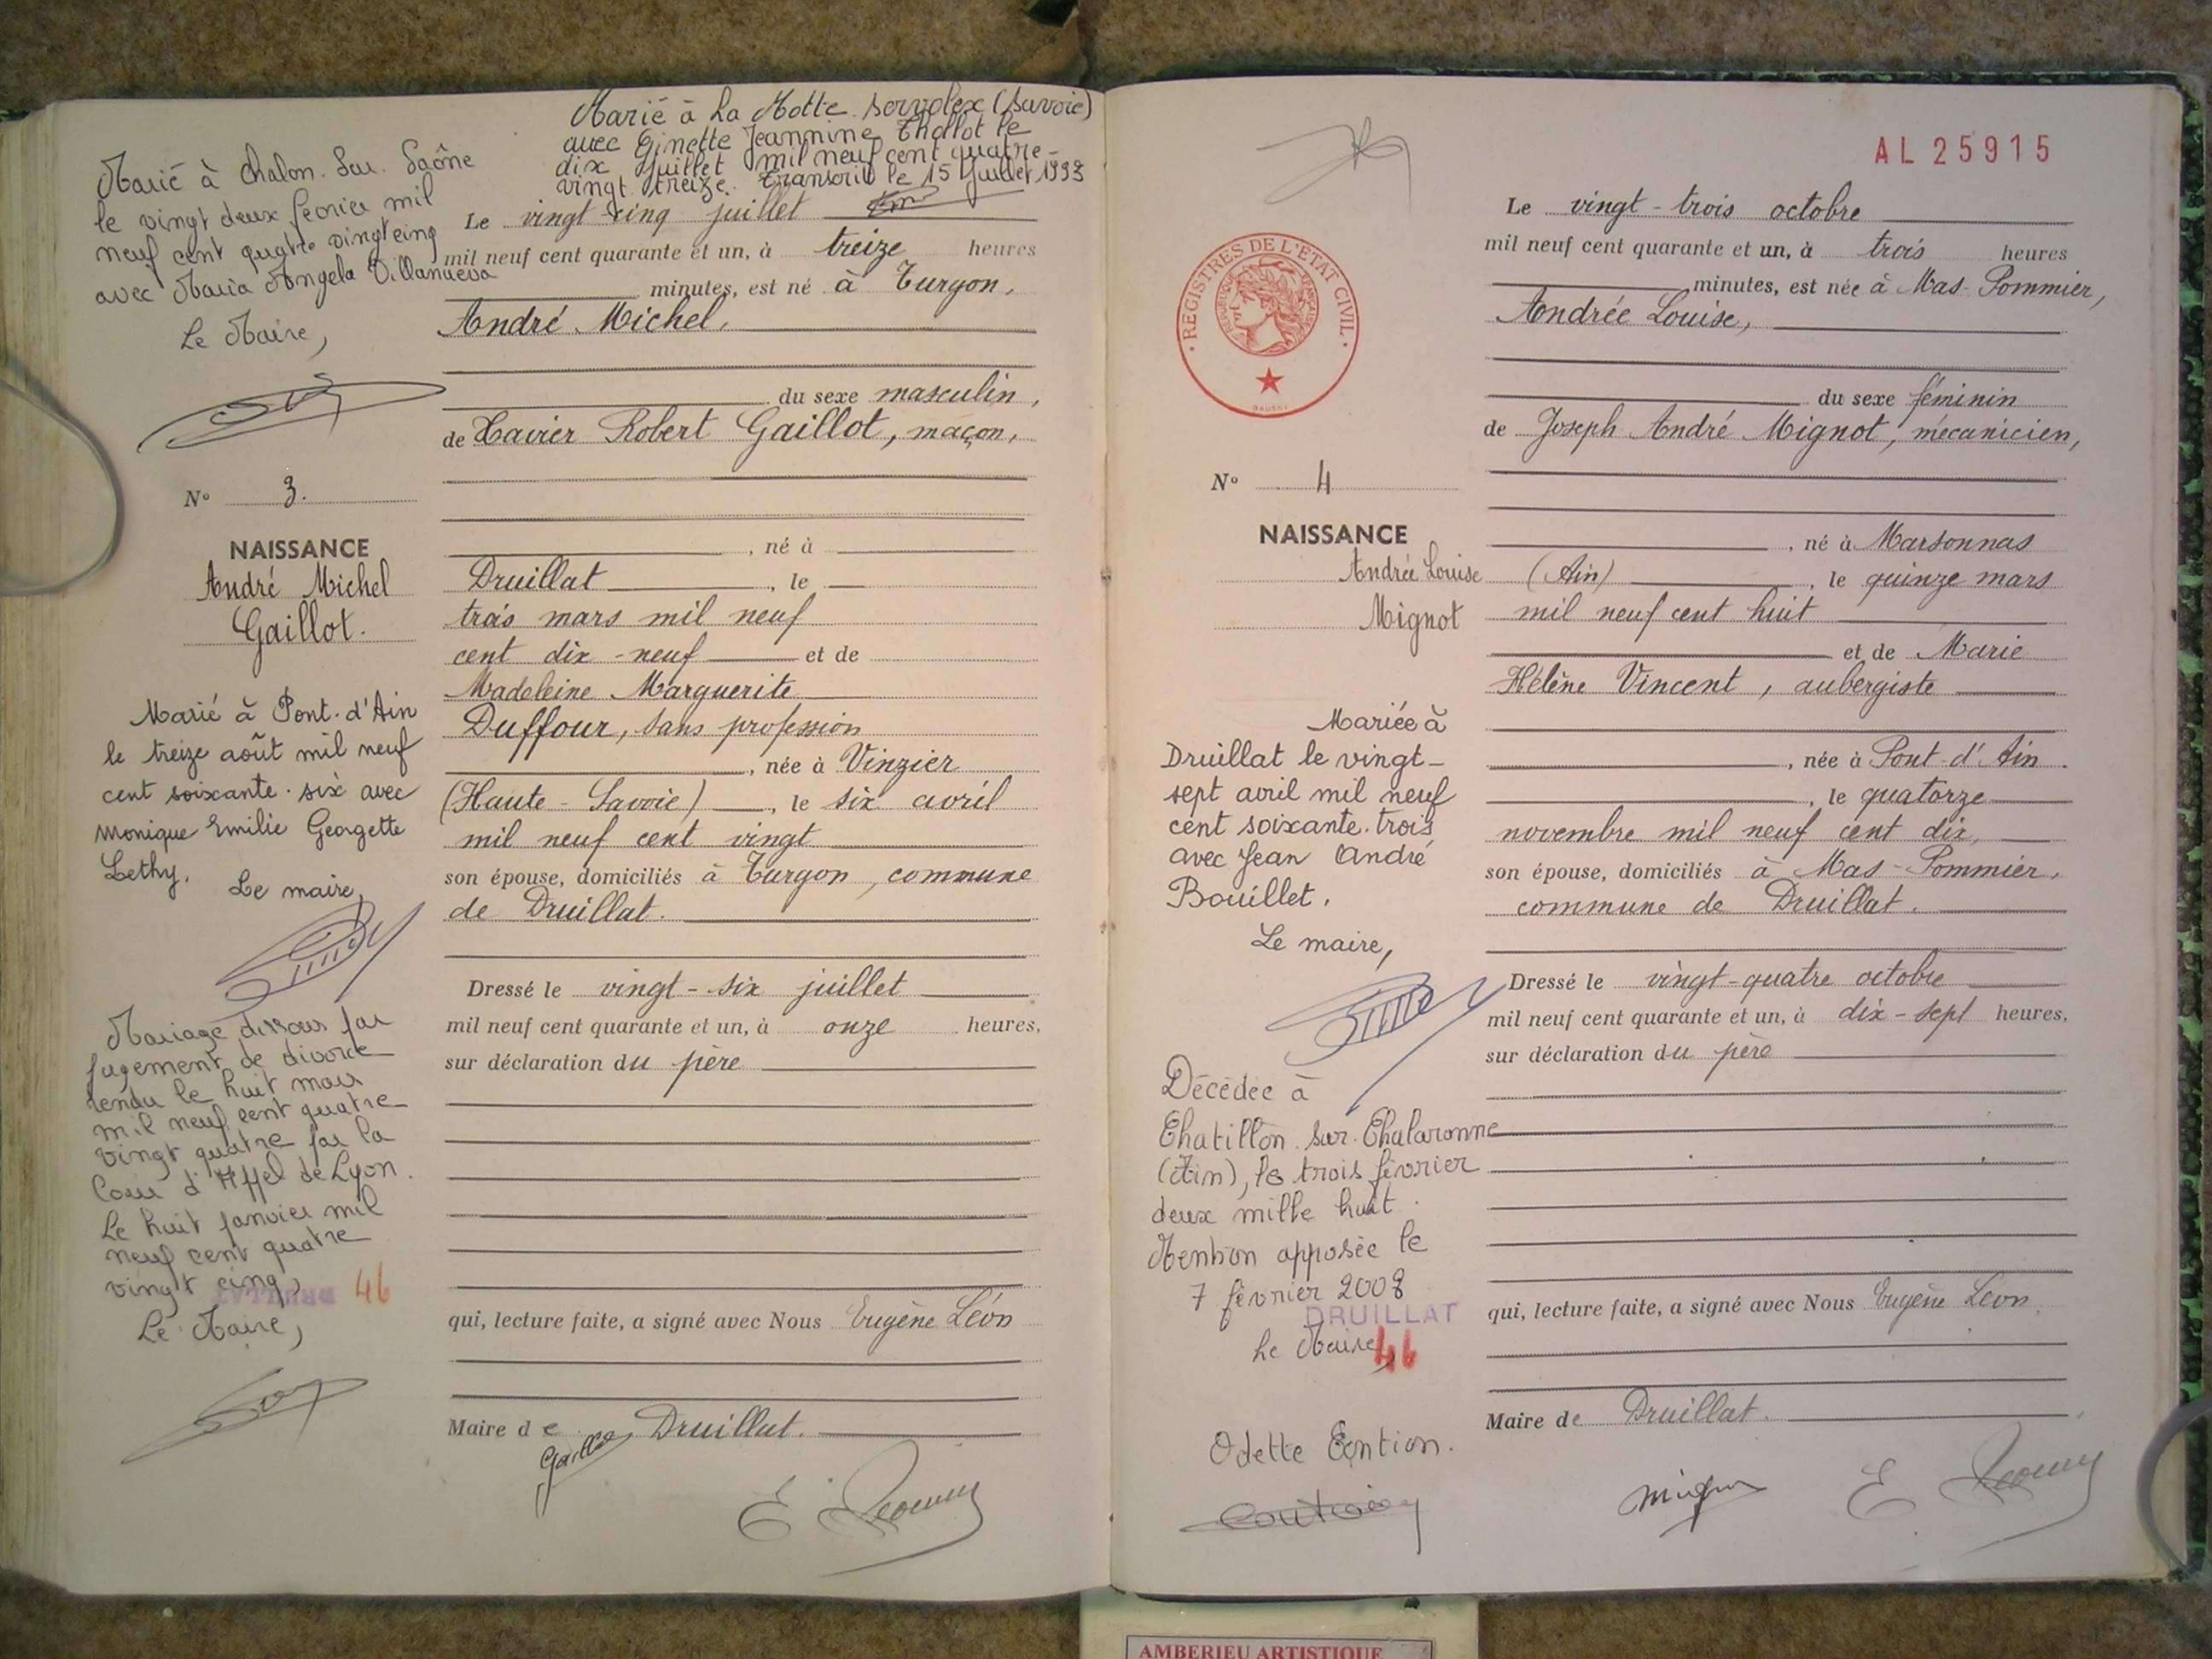 Marié à La Motte Servolex (Savoie)
avec Ginette Jeannine Thollot le
dix juillet mil neuf cent quatre-
vingt treize. Transcrit le 15 Juillet 1993
Marié à Chalon. Sur. Saône
le vingt deux février mil
neuf cent quatre vingt cinq
avec Maria Angela Villanueva
Le Maire,
Nº 3.
NAISSANCE
André Michel
Gaillot.
Marié à Pont-d'Ain
le treize août mil neuf
cent soixante-six avec
Monique Emilie Georgette
Lethy.
Le maire,
Mariage dissous par
jugement de divorce
rendu le huit mars
mil neuf cent quatre
vingt quatre par la
Cour d'Appel de Lyon.
Le huit janvier mil
neuf cent quatre
vingt cinq,
46
Le Maire,
Le vingt-cinq juillet
mil neuf cent quarante et un, à treize heures
minutes, est né à Turgon,
André Michel,
du sexe masculin,
de Xavier Robert Gaillot, maçon,
, né à
Druillat, le
trois mars mil neuf
cent dix-neuf et de
Madeleine Marguerite
Duffour, sans profession
, née à Vinzier
(Haute-Savoie), le six avril
mil neuf cent vingt
son épouse, domiciliés à Turgon, commune
de Druillat.
Dressé le vingt-six juillet
mil neuf cent quarante et un, à onze heures,
sur déclaration du père
qui, lecture faite, a signé avec Nous Eugène Léon
Maire de Druillat.
Gaillot
AL 25915
REGISTRES DE L'ÉTAT CIVIL
Nº 4
NAISSANCE
Andrée Louise
Mignot
Mariée à
Druillat le vingt-
sept avril mil neuf
cent soixante-trois
avec Jean André
Bouillet.
Le maire,
Décédée à
Chatillon. Sur. Chalaronne
(Ain), le trois février
deux mille huit.
Mention apposée le
7 février 2008
DRUILLAT
Le Maire,
46
Odette
Le vingt-trois octobre
mil neuf cent quarante et un, à trois heures
minutes, est née à Mas-Pommier,
Andrée Louise,
du sexe féminin
de Joseph André Mignot, mécanicien,
, né à Marsonnas
(Ain), le quinze mars
mil neuf cent huit
et de Marie
Hélène Vincent, aubergiste
, née à Pont-d'Ain.
, le quatorze
novembre mil neuf cent dix,
son épouse, domiciliés à Mas-Pommier,
commune de Druillat.
Dressé le vingt-quatre octobre
mil neuf cent quarante et un, à dix-sept heures,
sur déclaration du père
qui, lecture faite, a signé avec Nous Eugène Léon
Maire de Druillat.
Mignot
AMBERIEU ARTISTIQUE